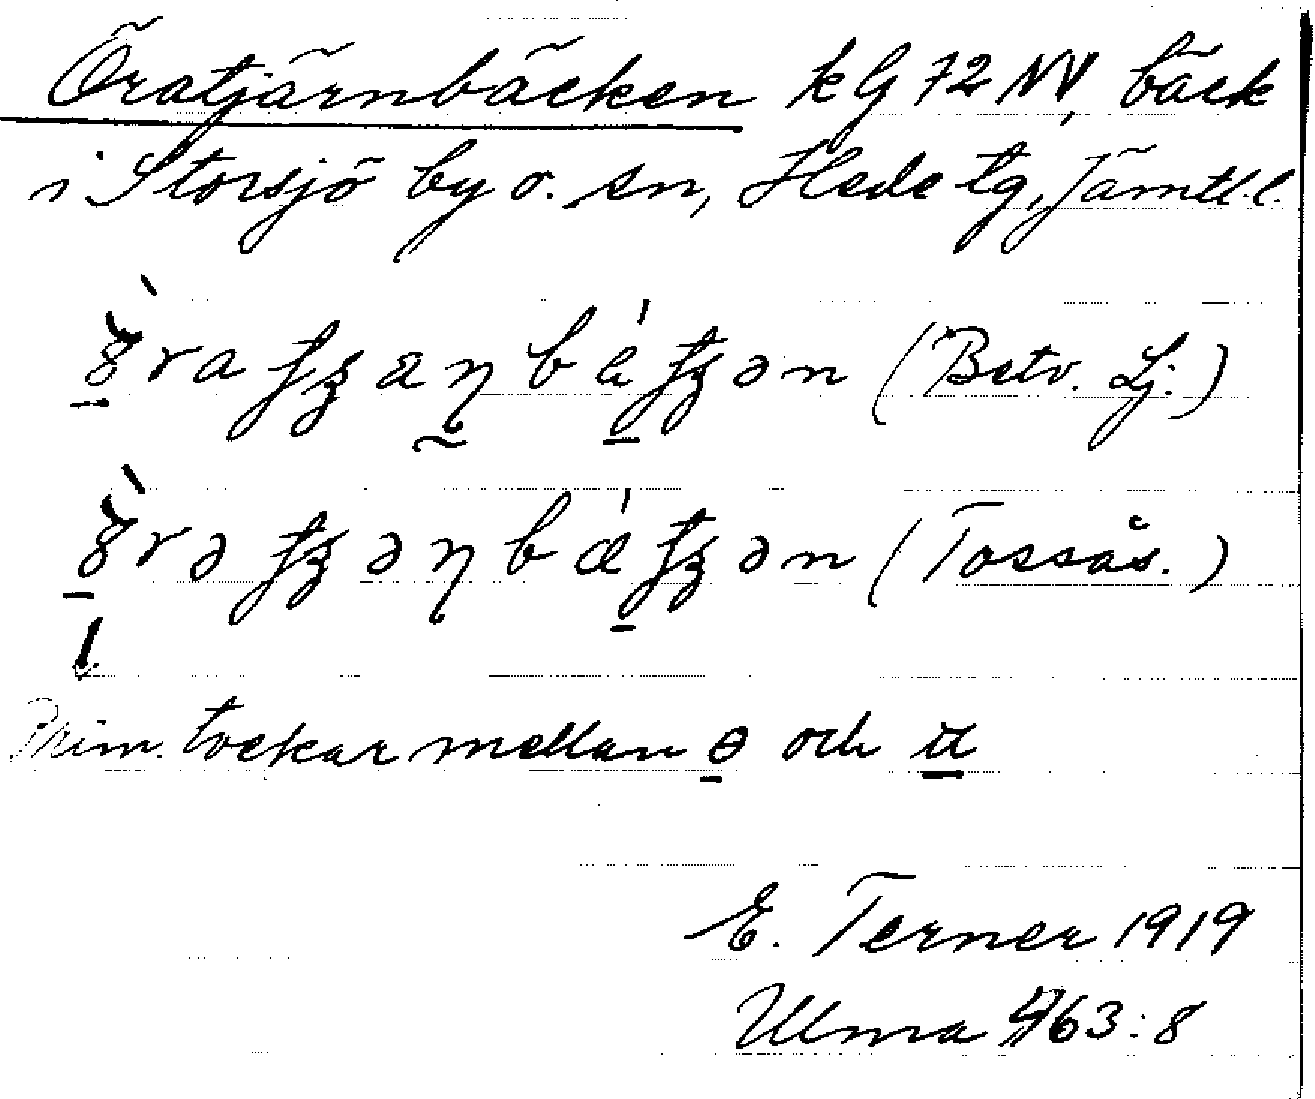 Öratjärnbäcken k G 72 NV, bäck
i Storsjö by o. sn, Hede tg, Jämtl. l.
(Betv. Lj.)
(Tossås.)
Prim. tvekar mellan ɵ och
E. Terner 1919
Ulma 463:8